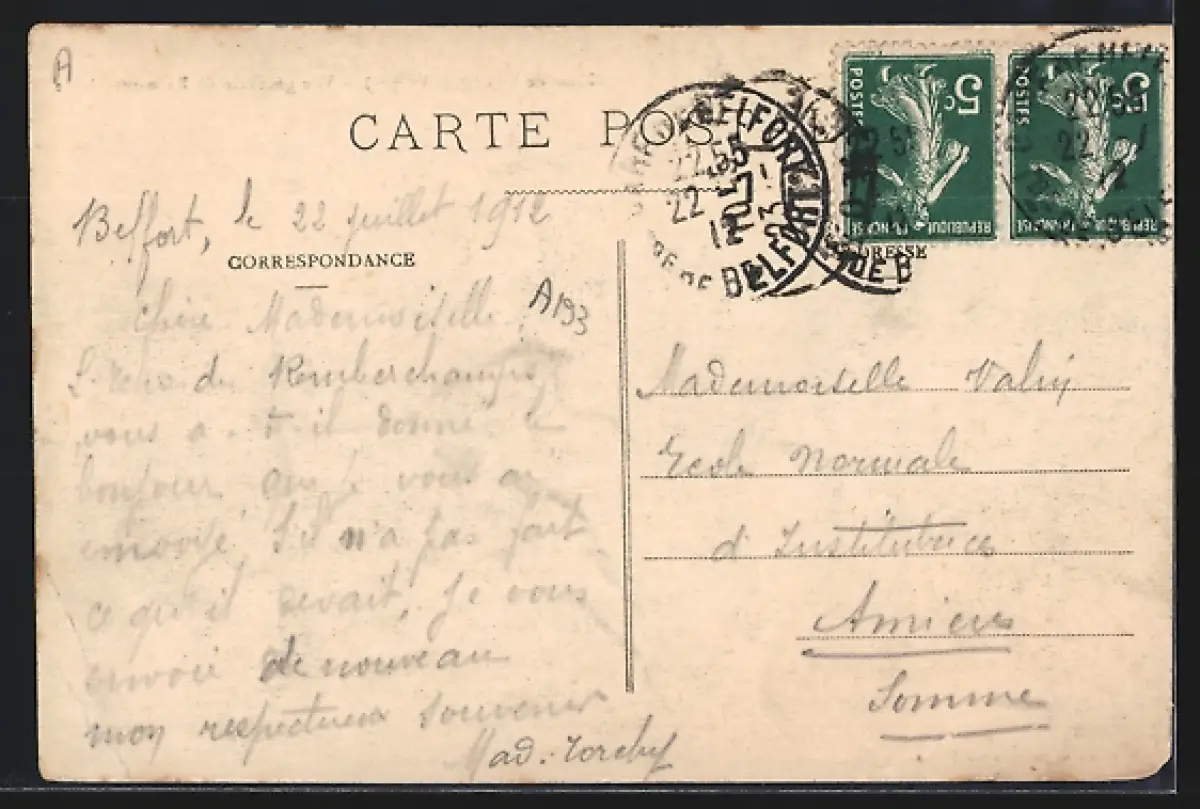 A
CARTE POS
Belfort, le 22 juillet 1912
CORRESPONDANCE
A193
Chère Mademoiselle,
du Remberchamps
vous a-t-il donné le
bonjour que je vous ai
envoyé. S'il n'a pas fait
ce qu'il devait, je vous
envoie de nouveau
mon respectueux souvenir
Mad.
ADRESSE
Mademoiselle
Ecole Normale
d'Institutrices
Amiens
Somme
5c
POSTES
REPUBLIQUE FRANÇAISE
5c
POSTES
REPUBLIQUE FRANÇAISE
BELFORT
22 55
22 -7
12
BELFORT
22 55
22 -7
12